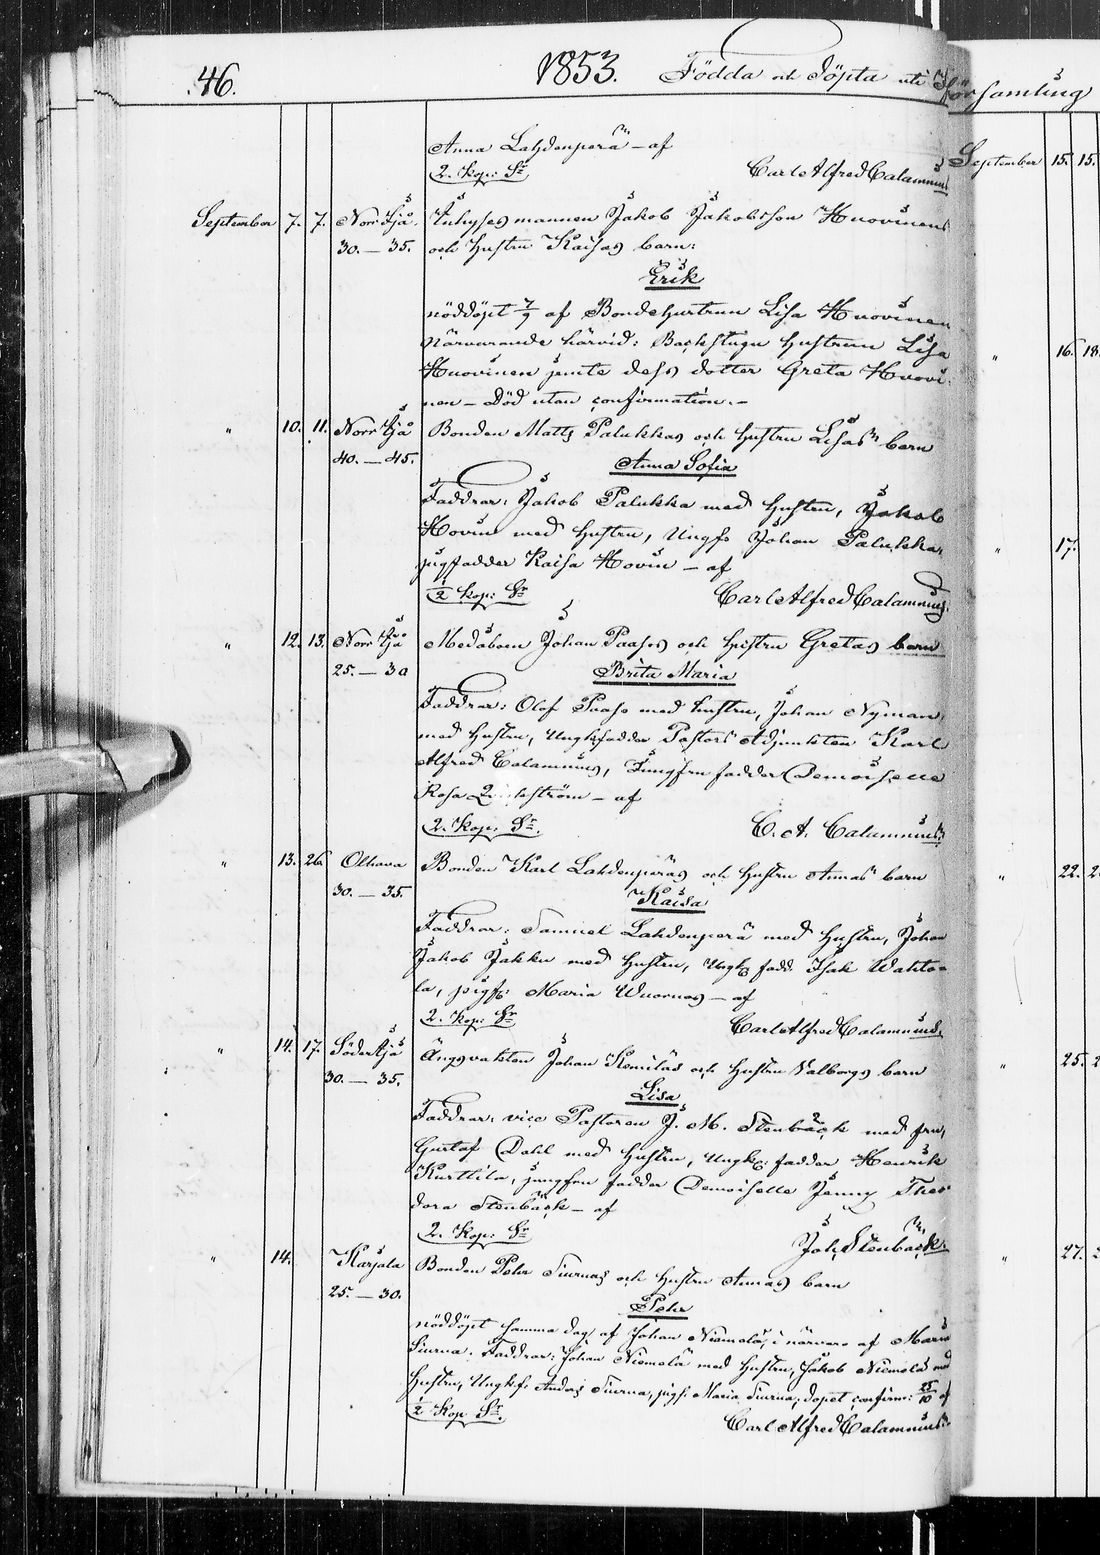 46.
1853. Födda och Döpta uti
Församling
Anna Lahdenperä – af
2. Kop: Sr
Carl Alfred Calamnius
September 7. 7. Norr Ijå. 30. – 35.
Inhyses mannen Jakob Jakobsson Huovinens
och hustru Kaisas barn:
Erik
nöddöpt 7/9 af Bondehustrun Lisa Huovinen
närvarande härvid: Backstugu hustrun Lisa
Huovinen jemte dess dotter Greta Huovi-
nen – Död utan confirmation. –
" 10. 11. Norr Ijå 40. – 45.
Bonden Matts Palukkas och hustru Lisas barn
Anna Sofia
Faddrar: Jakob Palukka med hustru, Jakob
Hovin med hustru, Ungf. Johan Palukka,
pigfadder Kaisa Hovin – af
1/2 kop: Sr
Carl Alfred Calamnius.
" 12. 13. Norr Ijå 25. – 30
Johan Paasos och hustru Gretas barn
Brita Maria
Faddrar: Olof Paaso med hustru, Johan Nyman
med hustru, Ungkfadder Pastors Adjunkten Karl
Alfred Calamnius, Jungfru fadder Demoiselle
Rosa – af
2. Kop: Sr.
C. A. Calamnius.
" 13. 26. Olhava 30. – 35.
Bonden Karl Lahdenperäs och hustru Annas barn
Kaisa
Faddrar: Samuel Lahdenperä med hustru, Johan
Jakob Jakku med hustru, Ungk: fadd. Isak Wahto-
la, pigf: Maria Wuornos – af
2. Kop: Sr
Carl Alfred Calamnius.
" 14. 17. Söder Ijå 30. – 35.
Ängsvakten Johan Komilas och hustru Valborgs barn
Lisa
Faddrar: vice Pastoren J. M. Stenbäck med fru,
Gustaf Dahl med hustru, Ungk: fadder Henrik
Kurttila, jungfru fadder Demoiselle Jenny Theo
dora Stenbäck – af
2. Kop: Sr
Joh. Stenbäck.
" 14. Karjala 25. – 30.
Bonden Pehr Tiurnas och hustru Annas barn
Pehr
nöddöpt samma dag, af Johan Niemelä, i närvaro af Maria
Tiurna. Faddrar: Johan Niemelä med hustru, Jakob Niemelä med
hustru, Ungkf. Anders Tiurna, pigf. Maria Tiurna, dopet confirm: 25/10 af
1/2 Kop Sr.
Carl Alfred Calamnius.
September 15. 15.
" 16. 18.
" 17.
" 22.
" 25.
" 27.